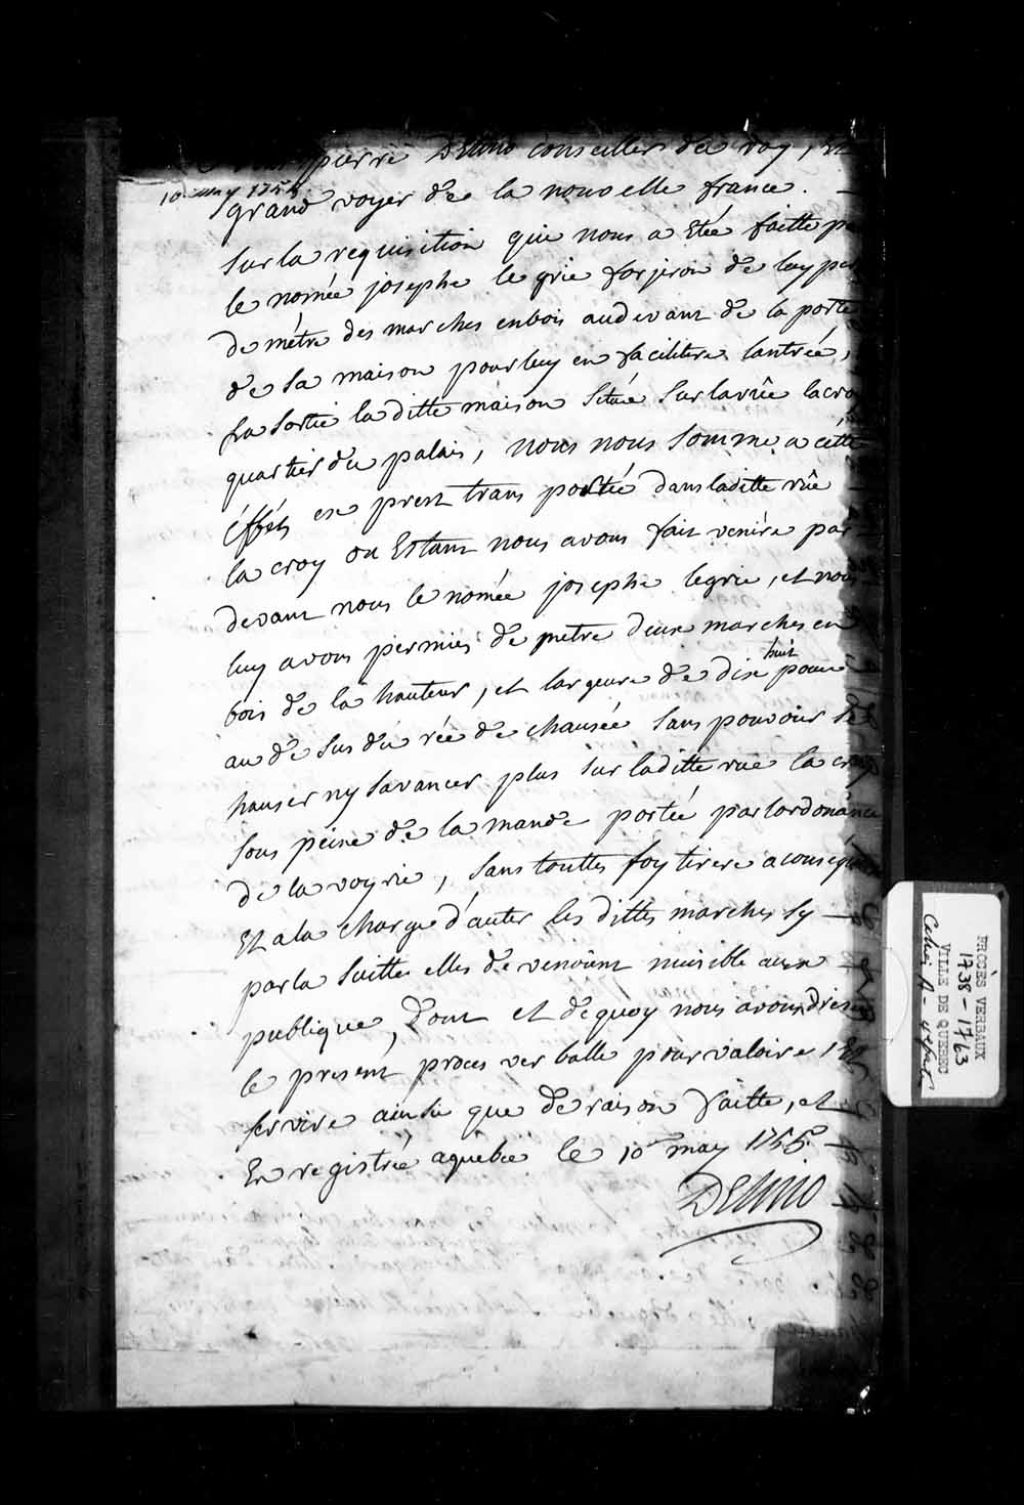 pierre DeLino conseiller du roy, Et
10 may 1755
grand voyer de la nouvelle france.
sur la requisition qui nous a Etée faitte pa
le nomée josephe le gris forjeron de luy per
de métre des marches enbois audevant de la porte
de sa maison pour luy en facilitere lantrée,
La sortie laditte maison situé sur la rüe lacroy
quartier du palais, nous nous somme a cétte
éffét exprest trans portée dans laditte rüe
la croy ou Estant nous avons fait venire par
devant nous le nomée josephe legris, et nous
luy avons permies de mettre deux marches en
bois de la hauteur, et largeure de dix huit pouce
au de sus du rée de chausée sans pouvoir Se
hauser ny savancer plus sur laditte rue la croy
sous peine de lamande portée par lordonance
de la voyrie, sans touttes foy tirere a conséquen
Et a la charge d'auter les dittes marches sy
par la suitte elles devenoient nuisible aux
publique, dont et dequoy nous avons dresé
le present proces verballe pour valoire, Et
servire ainsie que de raison faitte, et
En registrée aquebec le 10e may 1755.
DELino
PROCÈS VERBAUX
1738-1763
VILLE DE QUÉBEC
Cahier A -